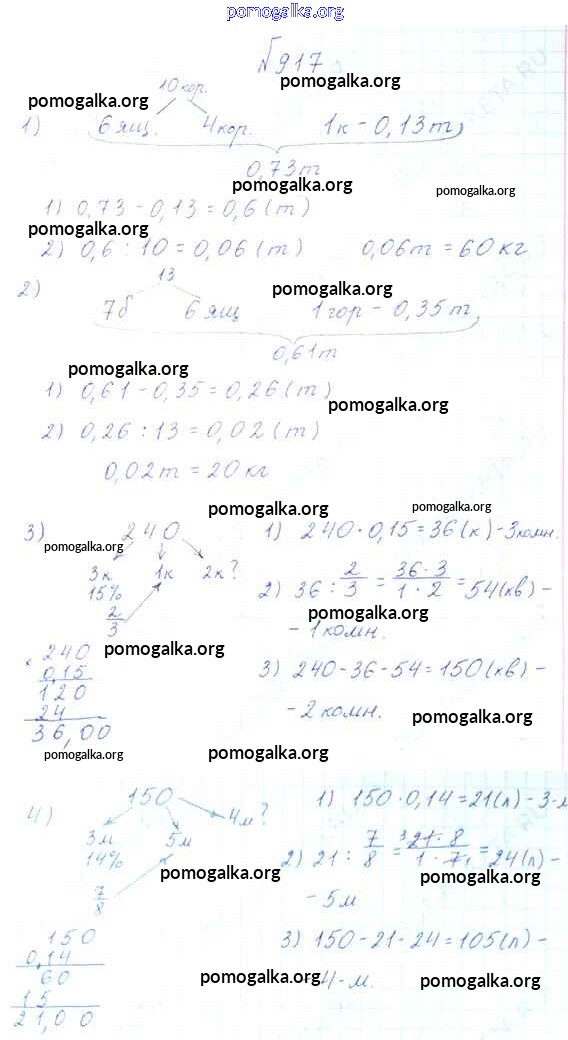 pomogalka.org
№917
pomogalka.org
10 кор.
pomogalka.org
1) 6 ящ. 4 кор. 1к - 0,13т,
0,73т
pomogalka.org
pomogalka.org
1) 0,73 - 0,13 = 0,6 (т)
pomogalka.org
2) 0,6 : 10 = 0,06 (т) 0,06т = 60 кг
13
pomogalka.org
2) 7б 6 ящ 1 гор - 0,35т,
0,61т
pomogalka.org
1) 0,61 - 0,35 = 0,26 (т)
pomogalka.org
2) 0,26 : 13 = 0,02 (т)
0,02т = 20 кг
pomogalka.org
pomogalka.org
3) 240 1) 240 · 0,15 = 36 (к) - 3 комн.
pomogalka.org
3к 1к 2к?
15%
2/3
2) 36 : 2/3 = 36 · 3 / 1 · 2 = 54 (кв) -
pomogalka.org
- 1 комн.
pomogalka.org
240
× 0,15
120
24
36,00
3) 240 - 36 - 54 = 150 (кв) -
- 2 комн.
pomogalka.org
pomogalka.org
pomogalka.org
4) 150 4м? 1) 150 · 0,14 = 21 (л) - 3-м
3м 5м
14%
7/8
2) 21 : 7/8 = ³21 · 8 / 1 · 7₁ = 24 (л) -
pomogalka.org
pomogalka.org
- 5м
150
0,14
60
15
21,00
3) 150 - 21 - 24 = 105 (л) -
pomogalka.org
4-м.
pomogalka.org